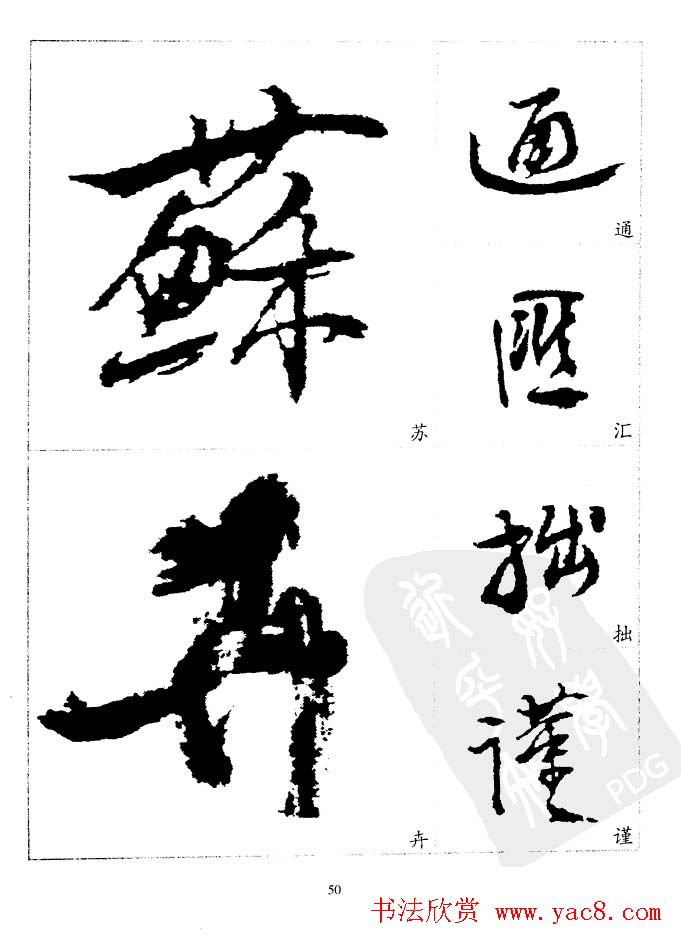 蘇
苏
卉
卉
通
通
匯
汇
拙
拙
謹
谨
PDG
50
书法欣赏 www.yac8.com